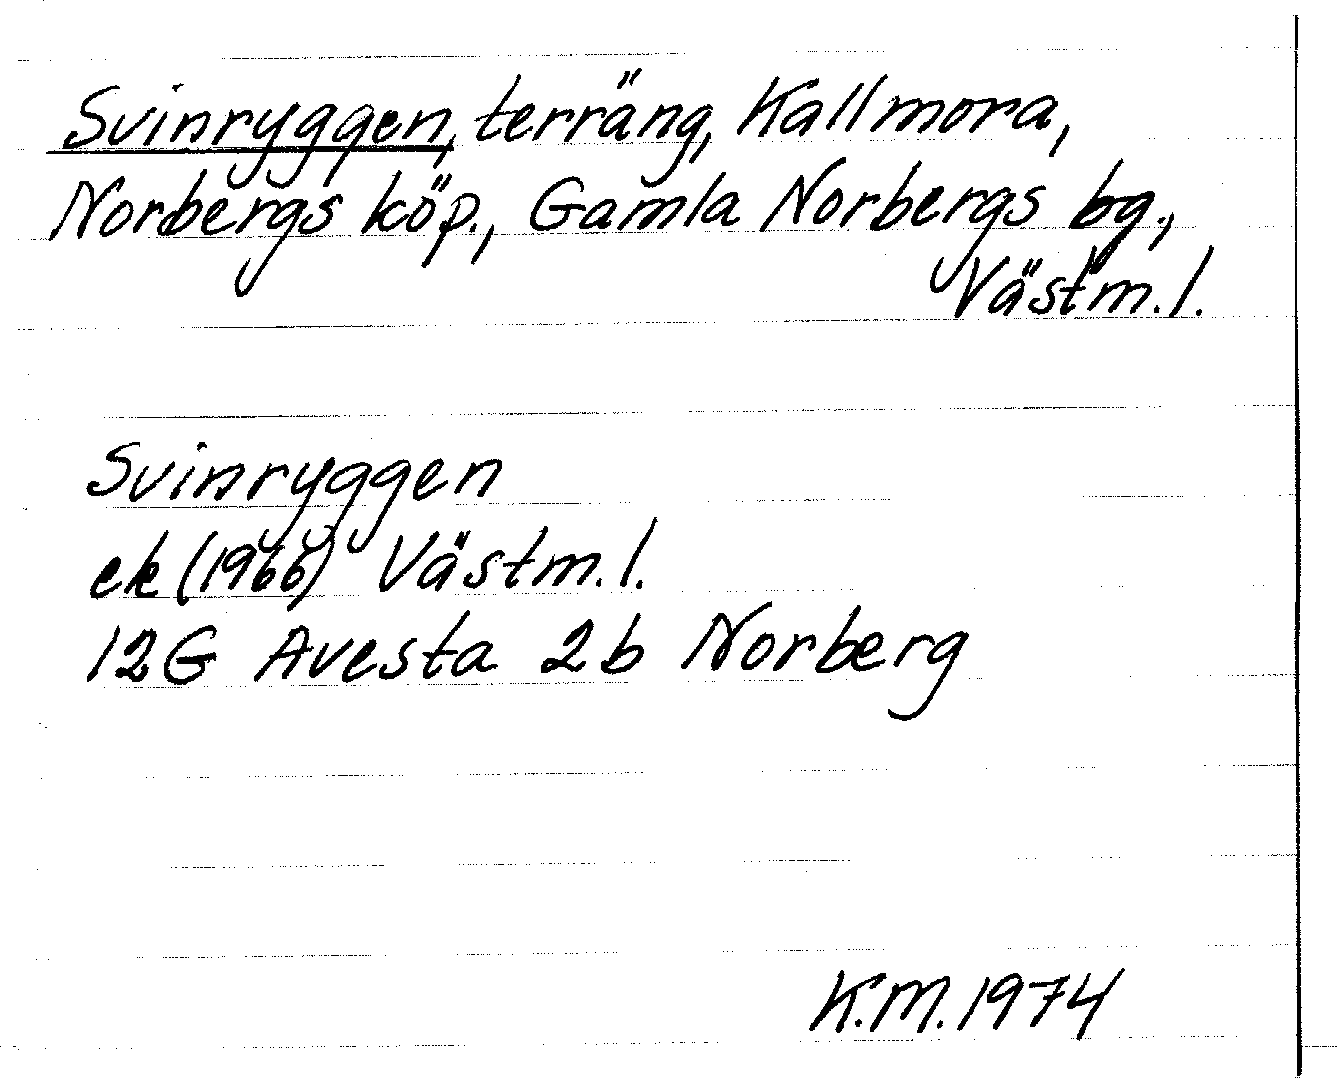 Svinryggen, terräng, Kallmora,
Norbergs köp., Gamla Norbergs bg.,
Västm.l.
Svinryggen
ek (1966) Västm.l.
12G Avesta 2b Norberg
K.M. 1974